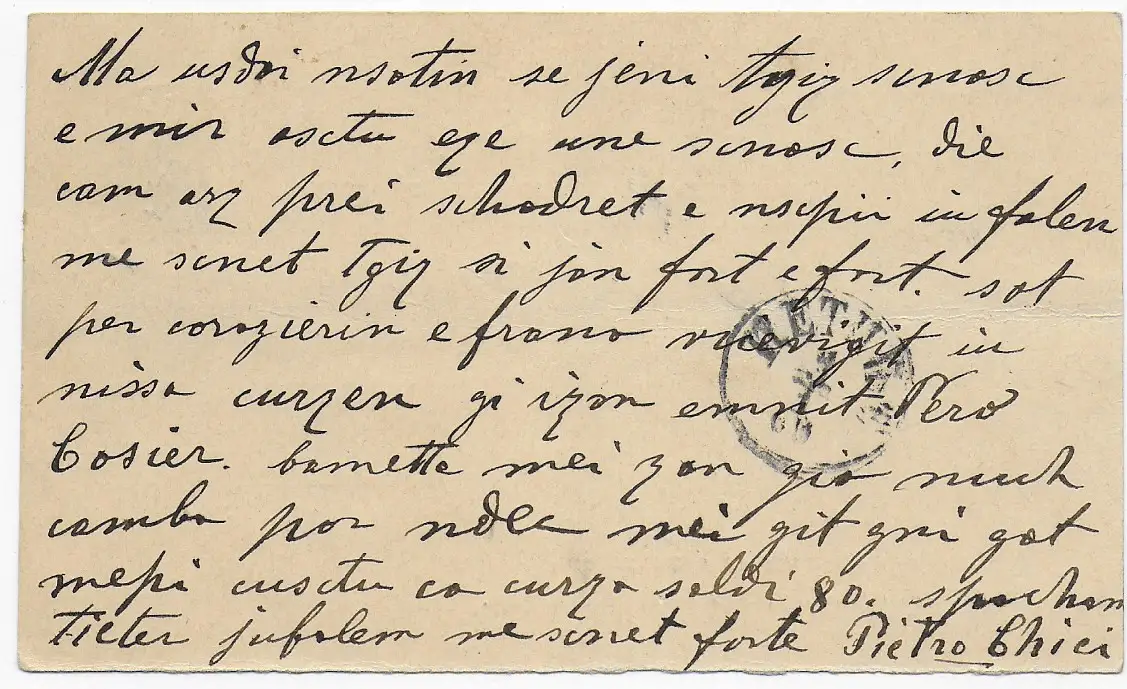 Ma usdoi nsotin se jeni tgiz scnosc
e mir osctu eze une scnosc, die
cam arz prei schodret e nscpii in falen
me scnet Tgiz si jan fort e fort. sot
per corozierin e frano vicevigit in
nissa curzen gi izon emnit Pero
Cosier. bametta mei zon gia nuch
camba por ndec mei git gni got
mepi cusctu ca curza soldi 80. spucham
Tieter jufalem me scnet forte Pietro Chici
RETU